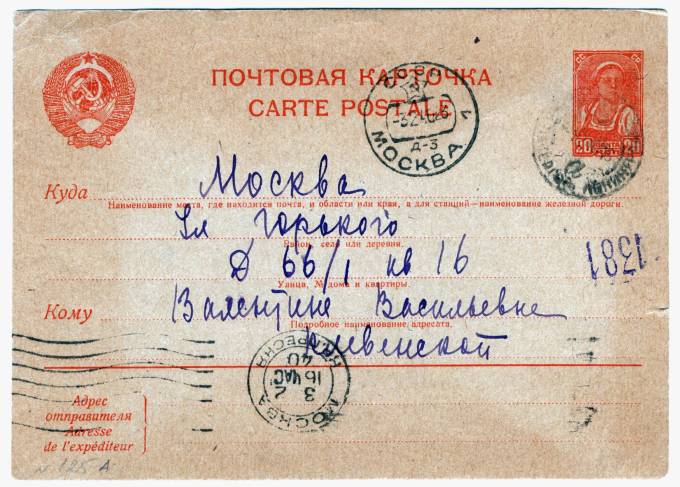 ПОЧТОВАЯ КАРТОЧКА
CARTE POSTALE
СС СР
20 20
СССР
-3 2 40
МОСКВА 1
Д-3
Куда
Москва
Наименование места, где находится почта, и области или края, а для станций—наименование железной дороги.
Ул Горького
Район, село или деревня.
Д 66/1 кв 16
Улица, № дома и квартиры.
1381
Кому
Валентине Васильевне
Подробное наименование адресата.
МОСКВА
3 2
16 ЧАС
40
Адрес
отправителя
Adresse
de l'expéditeur
N 125 A